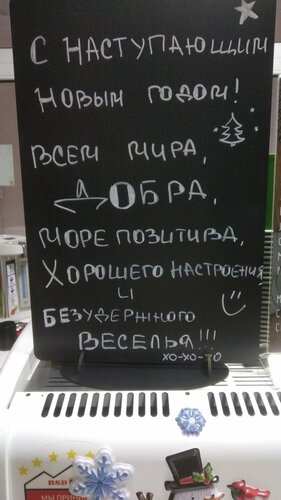 С НАСТУПАЮЩИМ
НОВЫМ ГОДОМ!
ВСЕМ МИРА,
ДОБРА,
МОРЕ ПОЗИТИВА,
ХОРОШЕГО НАСТРОЕНИЯ
И
БЕЗУДЕРЖНОГО
ВЕСЕЛЬЯ!!!
ХО-ХО-ХО
BSB